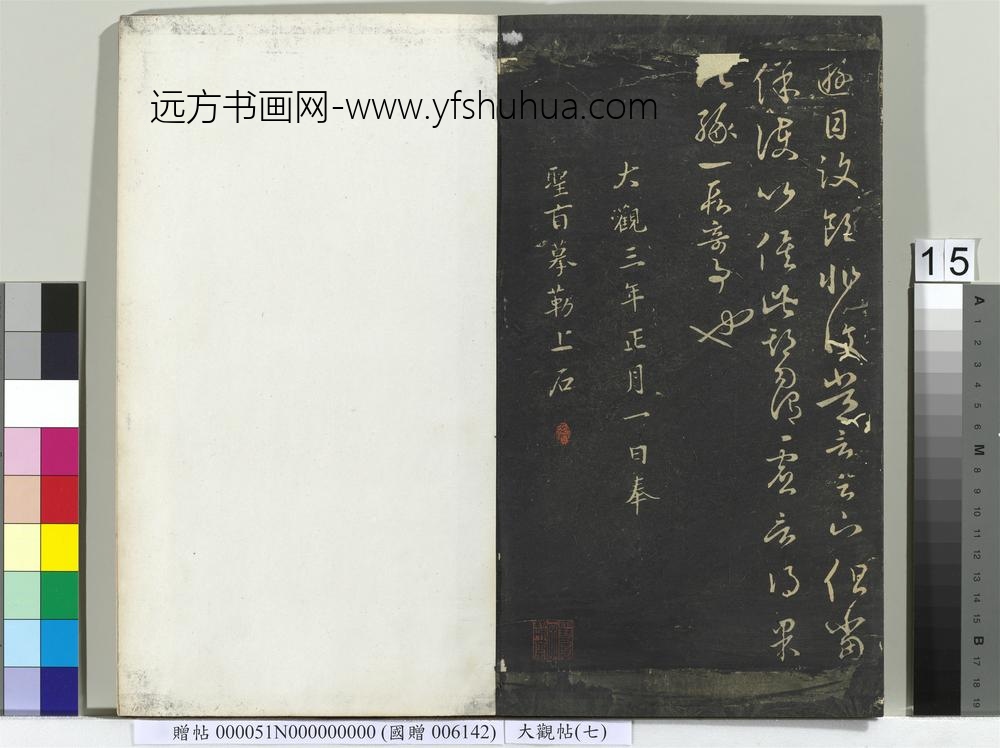 远方书画网-www.yfshuhua.com
遊目汶領非復常言足下但當
保護以俟此期勿謂虛言得果
此緣一段奇事也
大觀三年正月一日奉
聖旨摹勒上石
15
A 1 2 3 4 5 6 M 8 9 10 11 12 13 14 15 B 17 18 19
贈帖 000051N000000000 (國贈 006142) 大觀帖(七)